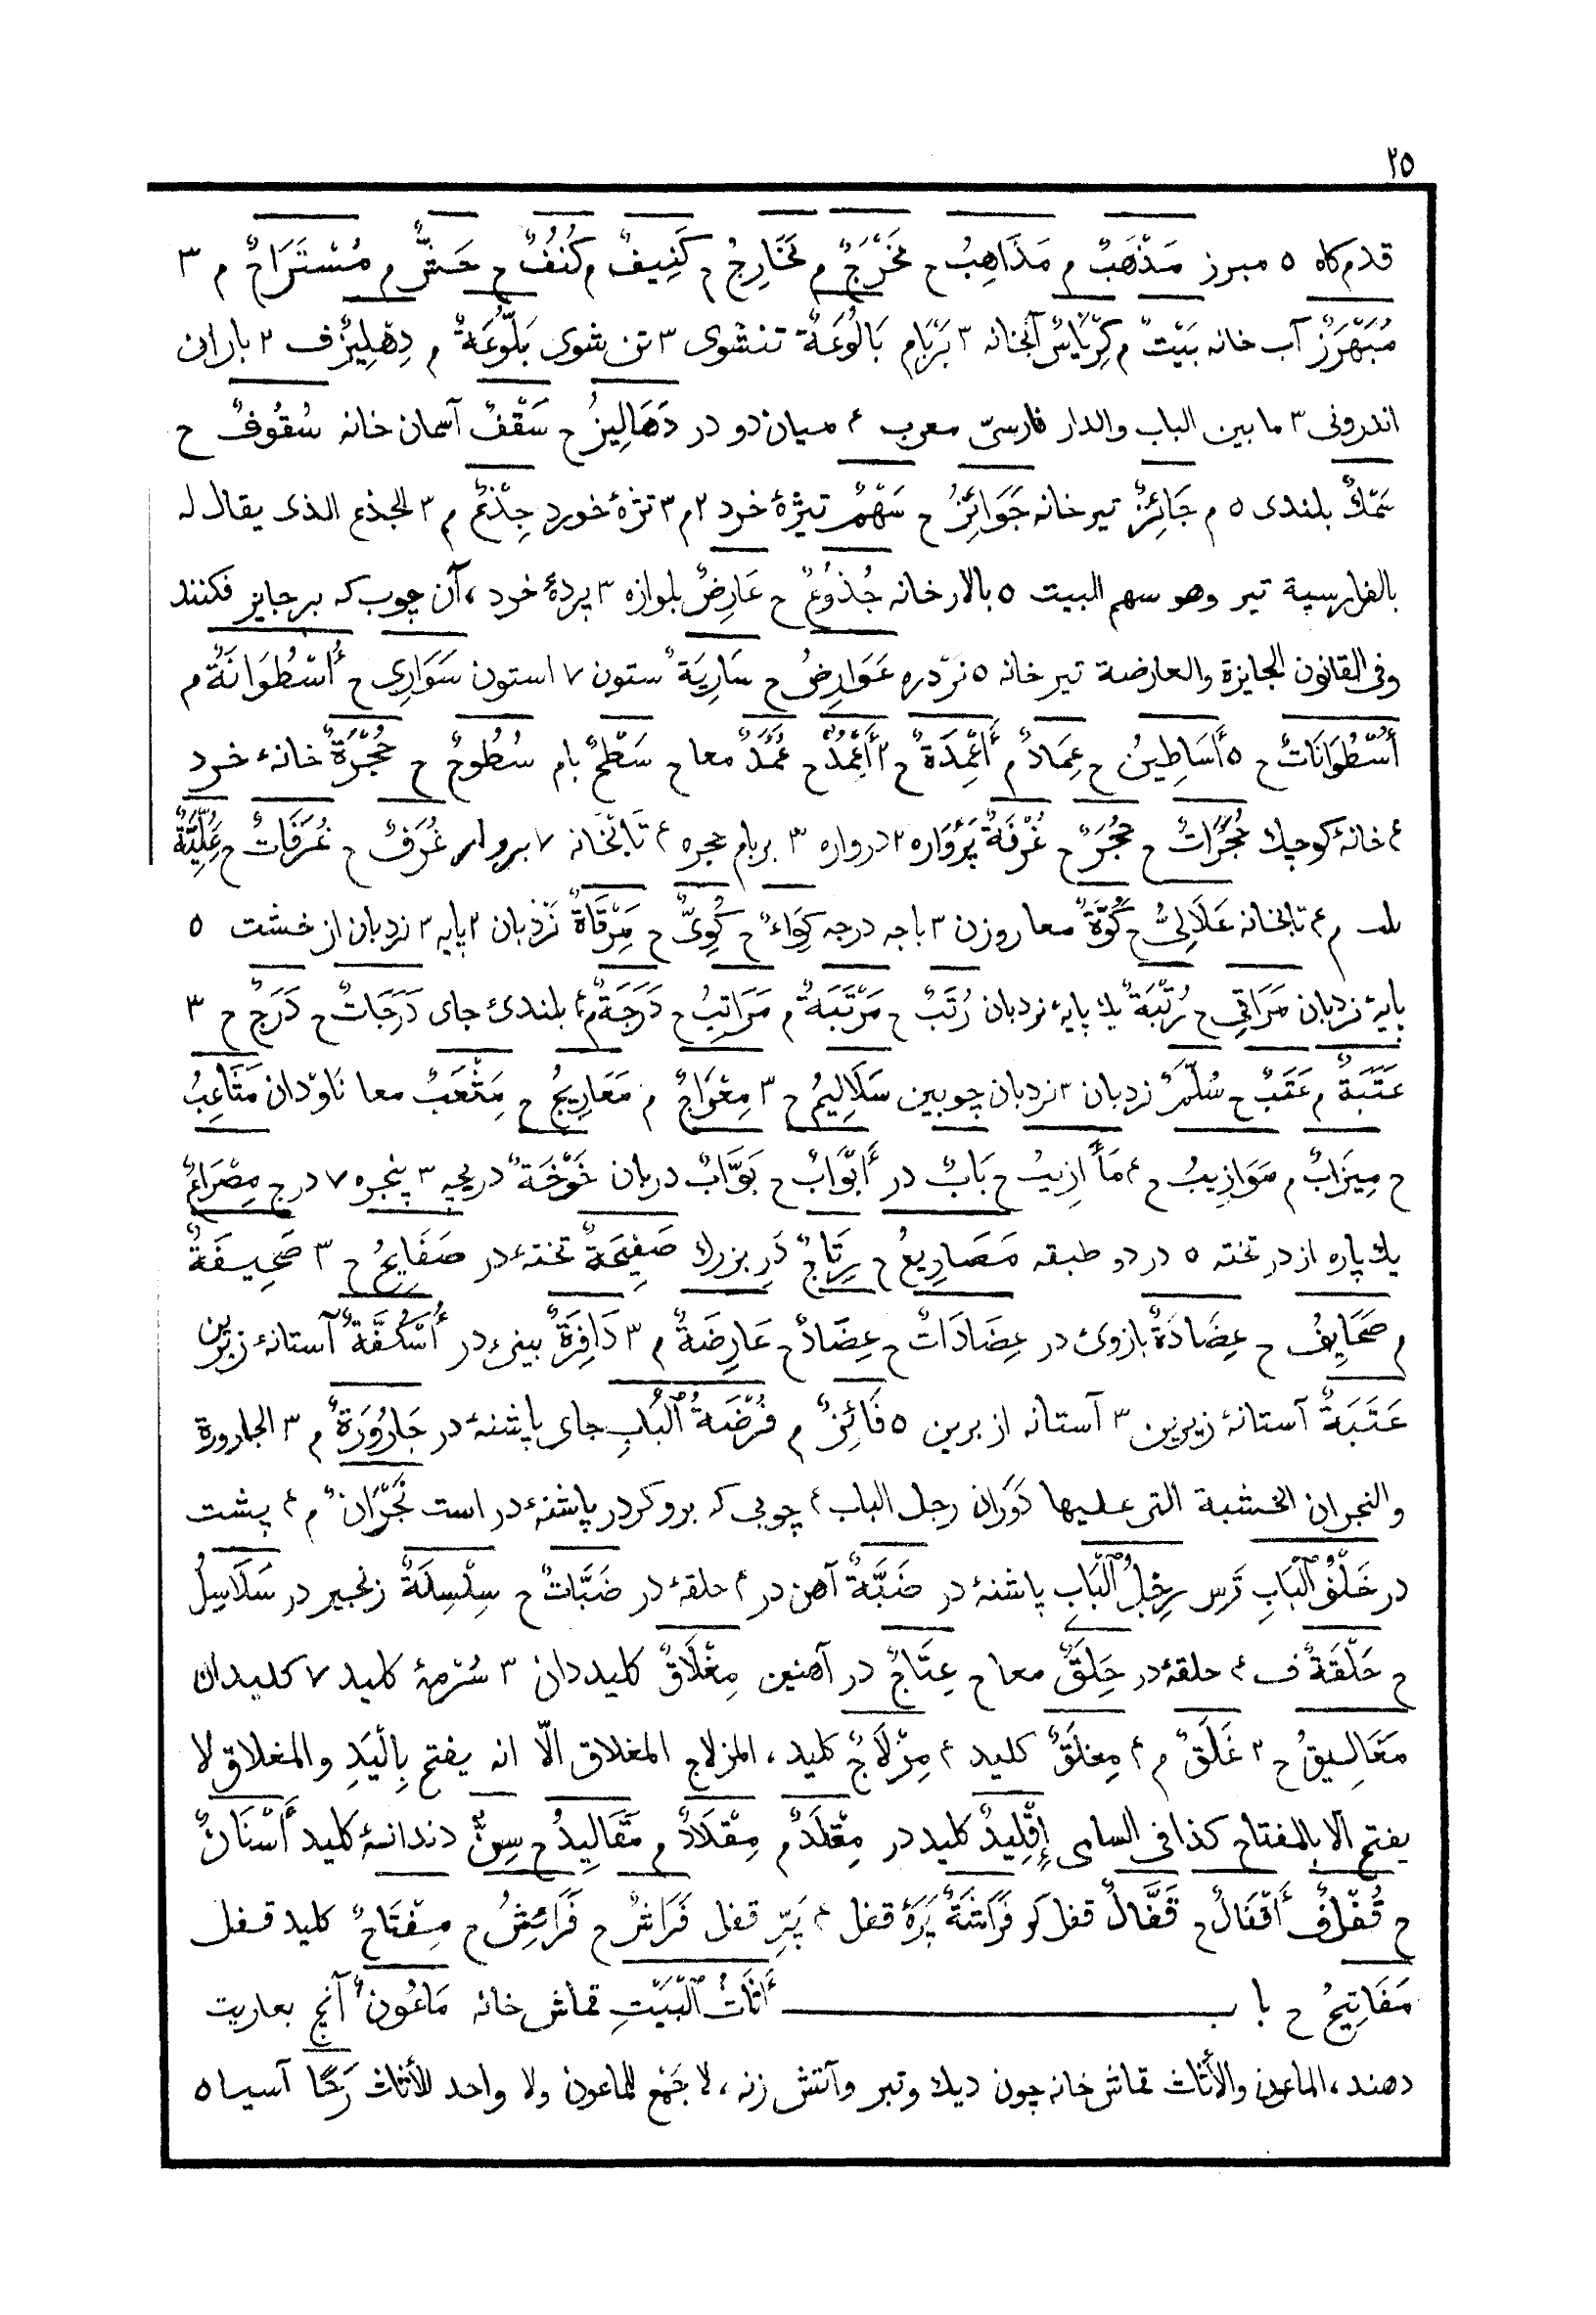 ٢٥
قدم‌کاه ٥ مبرز مَذْهَبٌ م مَذَاهِبُ ح مَخْرَجٌ م مَخَارِجُ ح كَنِيفٌ م كُنُفٌ ح حَشٌّ م مُسْتَرَاحٌ م ٣
مُبَهْرَزٌ آب خانه بَيْتٌ م كِرْيَاسٌ آبخانه ٣ بَرْبَام بَالُوعَةٌ تنشوی ٣ تن شوی بَلُّوعَةٌ م دِهْلِيزٌ ف ٢ باران
اندرونی ٣ ما بين الباب والدار فارسیّ معرب ٤ میان دو در دَهَالِيزُ ح سَقْفٌ آسمان خانه سُقُوفٌ ح
سَمْكٌ بلندی ٥ م جَائِزٌ تیر خانه جَوَائِزُ ح سَهْمٌ تیژهٔ خرد ٢ م ٣ تژهٔ خورد جِذْعٌ م ٣ الجذع الذی يقال له
بالفارسية تير وهو سهم البيت ٥ بالار خانه جُذُوعٌ ح عَارِضٌ بلوازه ٣ پردهٔ خرد ، آن چوب که بر جایز فکنند
وفی القانون الجايزة والعارضة تیر خانه ٥ نَرّدره عَوَارِضُ ح سَارِيَةٌ ستون ٧ استون سَوَارِی ح أُسْطُوَانَةٌ م
أُسْطُوَانَاتٌ ح ٥ أَسَاطِينُ ح عِمَادٌ م أَعْمِدَةٌ ح ٢ أَعْمُدٌ ح عُمَدٌ معا ح سَطْحٌ بام سُطُوحٌ ح حُجْرَةٌ خانهٔ خرد
٤ خانهٔ کوچک حُجُرَاتٌ ح حُجَرٌ ح غُرْفَةٌ پَرْوَاره ٢ درواره ٣ بر بام حجره ٤ تَابْخَانه ٧ بروار غُرَفٌ ح غُرَفَاتٌ ح عُلِّيَّةٌ
م ٤ تابخانه عَلَالِيُّ ح كُوَّةٌ معا روزن ٣ باجه درجه كِوَاءٌ ح كُوِیٌّ ح مَرْقَاةٌ نَرْدَبان ٢ پایه ٣ نردبان از خشت ٥
پایهٔ نردبان مَرَاقِی ح رُتْبَةٌ یك پایهٔ نردبان رُتَبٌ ح مَرْتَبَةٌ م مَرَاتِبُ ح دَرَجَةٌ م ٤ بلندیٔ جای دَرَجَاتٌ ح دَرَجٌ ح ٣
عَتَبَةٌ م عَقَبٌ ح سُلَّمٌ نردبان ٣ نردبان چوبین سَلَالِيمُ ح ٣ مِعْرَاجٌ م مَعَارِيجُ ح مِثْعَبٌ معا نَاوْدان مَثَاعِبُ
ح مِيزَابٌ م مَوَازِيبُ ح ٤ مَأَازِيبُ ح بَابٌ در أَبْوَابٌ ح بَوَّابٌ دربان خَوْخَةٌ دریچه ٣ پنجره ٧ درج مِصْرَاعٌ
یك پاره از در تخته ٥ در دو طبقه مَصَارِيعُ ح رِتَاجٌ دَرِ بزرك صَفِيحَةٌ تختهٔ در صَفَايِحُ ح ٣ صَحِيفَةٌ
م صَحَايِفُ ح عِضَادَةٌ بازوئ در عِضَادَاتٌ ح عِضَادٌ ح عَارِضَةٌ م ٣ دَافِرَةٌ بینیٔ در أُسْكُفَّةٌ آستانهٔ زبرین
عَتَبَةٌ آستانهٔ زیرین ٣ آستانه از برین ٥ فَائِزٌ م فُرْضَةُ الْبَابِ جای پاشنهٔ در جَارُورَةٌ م ٣ الجارورة
والنجران الخشبة التی علیها دَوَران رجل الباب ٤ چوبی که برو کردر پاشنهٔ در است نَجْرَانٌ م ٤ پشت
در خَلْفُ الْبَابِ تَرس رِجْلُ الْبَابِ پاشنهٔ در ضَبَّةٌ آهن در ٤ حلقهٔ در ضَبَّاتٌ ح سِلْسِلَةٌ زنجیر در سَلَاسِلُ
ح حَلْقَةٌ ف ٤ حلقهٔ در حِلَقٌ معا ح عِتَاجٌ در آهنین مِغْلَاقٌ کلیددان ٣ سُرْمهٔ کلید ٧ کلیدان
مَغَالِيقُ ح ٣ غَلَقٌ م ٤ مِغْلَقٌ کلید ٤ مِزْلَاجٌ کلید ، المزلاج المغلاق الّا انه يفتح بِالْيَدِ والمغلاق لا
يفتح الّا بالمفتاح کذا فی السامی إِقْلِيدٌ کلید در مِقْلَدٌ م مِقْلَادٌ م مَقَالِيدُ ح سِنٌّ دندانهٔ کلید أَسْنَانٌ
ح قُفْلٌ ف أَقْفَالٌ ح قَفَّالٌ قفل کو فَرَاشَةٌ پَرَهٔ قفل ٤ پَرِّ قفل فَرَاشٌ ح فَرَائِشُ ح مِفْتَاحٌ کلید قفل
مَفَاتِيحُ ح بـا ب أَثَاثُ الْبَيْتِ قماش خانه مَاعُونٌ آنچ بعاریت
دهند ، الماعون والأثاث قماش خانه چون دیك وتبر وآتش زنه ، لا جَمْعَ للماعون ولا واحد للأثاث رَحًا آسیا ٥